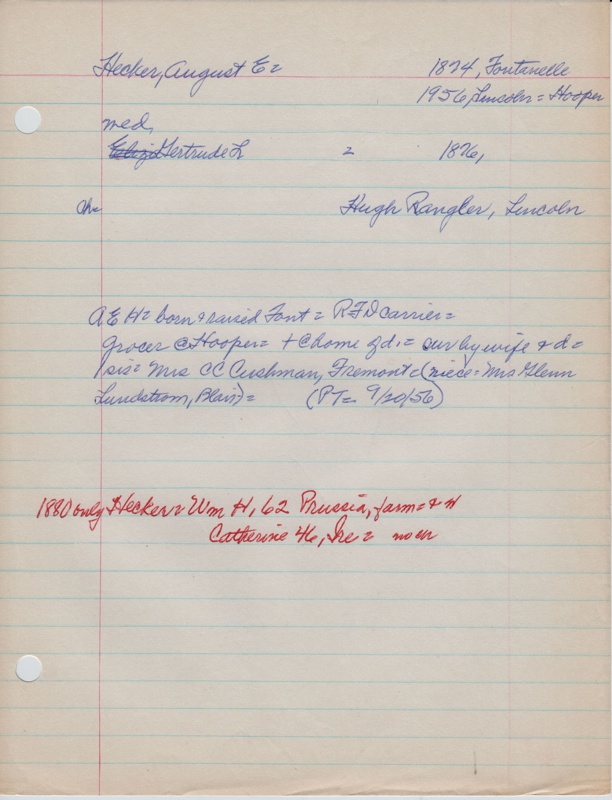 Hecker, August E = 1874, Fontanelle
1956, Lincoln = Hooper
med,
Gertrude L = 1876,
ch = Hugh Rangler, Lincoln
A E H = born & raised Font = RFD carrier =
grocer @ Hooper = + @ home of d. = sur by wife & d =
1 sis = Mrs CC Cushman, Fremont = (niece = Mrs Glenn
Lundstrom, Blair) = (PT = 9/20/56)
1880 only Hecker = Wm H, 62 Prussia, farm = &
Catherine 46, Ire = no ch